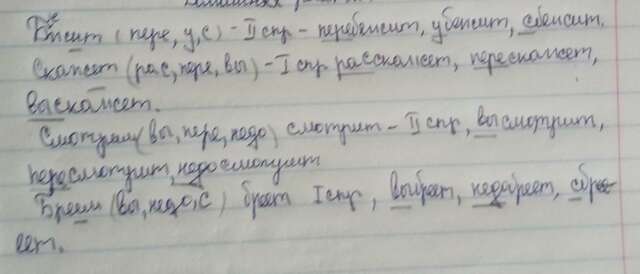 Бежит (пере, у, с) - II спр - перебежит, убежит, сбежит.
Скажет (рас, пере, вы) - I спр расскажет, перескажет,
выскажет.
Смотрим (вы, пере, недо) смотрит - II спр, высмотрит,
пересмотрит, недосмотрит
Бреем (вы, недо, с) бреет I спр, выбреет, недобреет, сбре
ет.